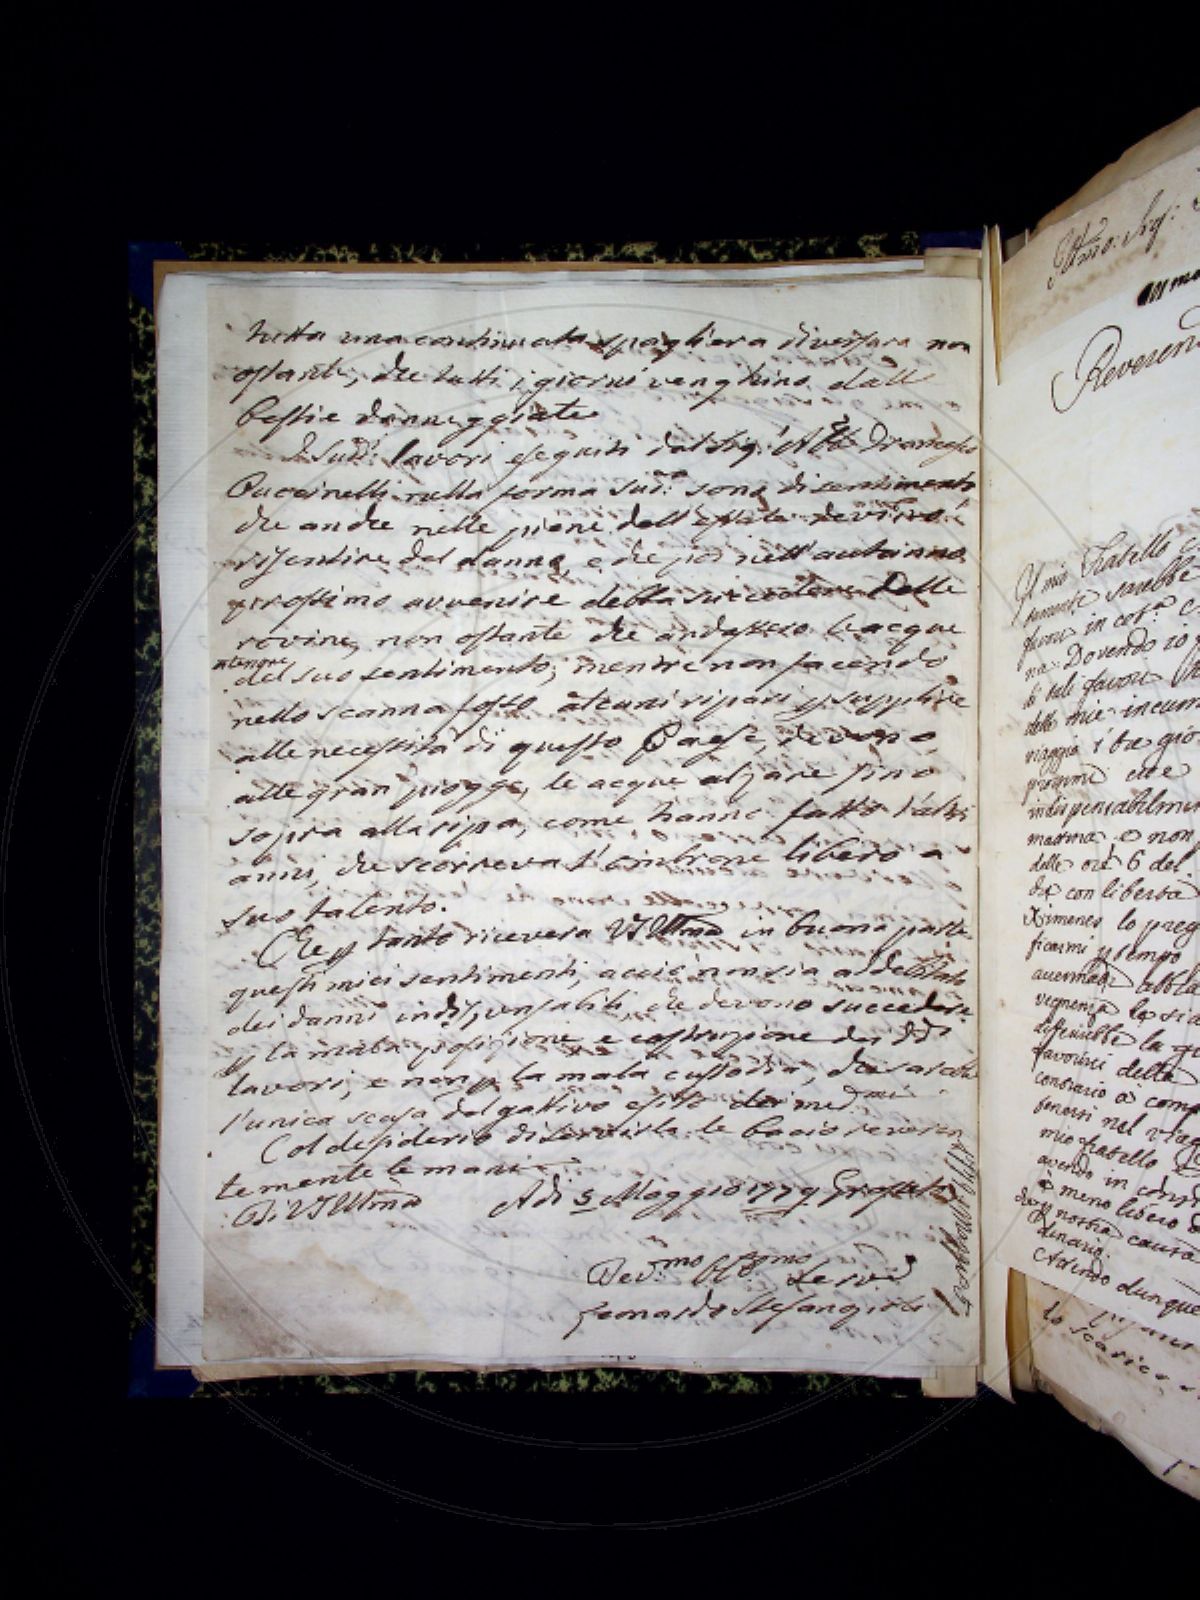 tutta una continuata spagliera diversura non
ostante, che tutti i giorni venghino dalle
bestie danneggiate
I Sud.i lavori eseguiti dal Sig.r Ab.te
Puccinelli nella forma Sud.a sono di sentimento
che anche nelle piene dell'Estate devino
risentire del danno, e che poi nell'autunno
prossimo avvenire debba succedere delle
rovine, non ostante che andassero le acque
del suo sentimento; mentre non facendo
nello scanna fosso alcuni ripari p supplire
alle necessità di questo Paese, devono,
alle gran piogge, le acque alzare fino
sopra alla ripa, come hanno fatto l'altri
anni, che scorreva l'ombrone libero a
suo talento.
Che p tanto ricevera VS Ill̃ma in buona parte
questi miei sentimenti, acciò non sia addebitato
dei danni indispensabili, che devono succedere
p la mala posizione e costruzione dei dd.i
lavori, e non p la mala custodia, che sarebbe
l'unica scusa del gattivo esito dei med.mi
Col desiderio di servirla le bacio reveren
temente le mani
Di VS Ill̃ma Adi 5 Maggio 1779 Grosseto
Dev.mo Obb.mo Serv.e
Leonardo Stefangioli
Reverend
Il mio Fratello
sarebbe
favor in cot.a
na. Dovendo io
li tali favori
delle mie incum
viaggio
indispensabilmen
mattina e non
delle ore 6 del
da con libertà
Ximenes lo preg
ficarmi p tempo
la qu
favorirci della
contrario a comp
tenersi nel viag
mio fratello
avendo in
a meno libero
nostra causa
denario.
Avendo dunque
lo scaric